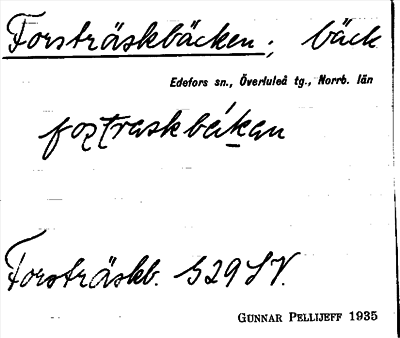 Forsträskbäcken; bäck
Edefors sn., Överluleå tg., Norrb. län
fo̱rs̱traskbäḱan
Forsträskb. S29SV.
GUNNAR PELLIJEFF 1935